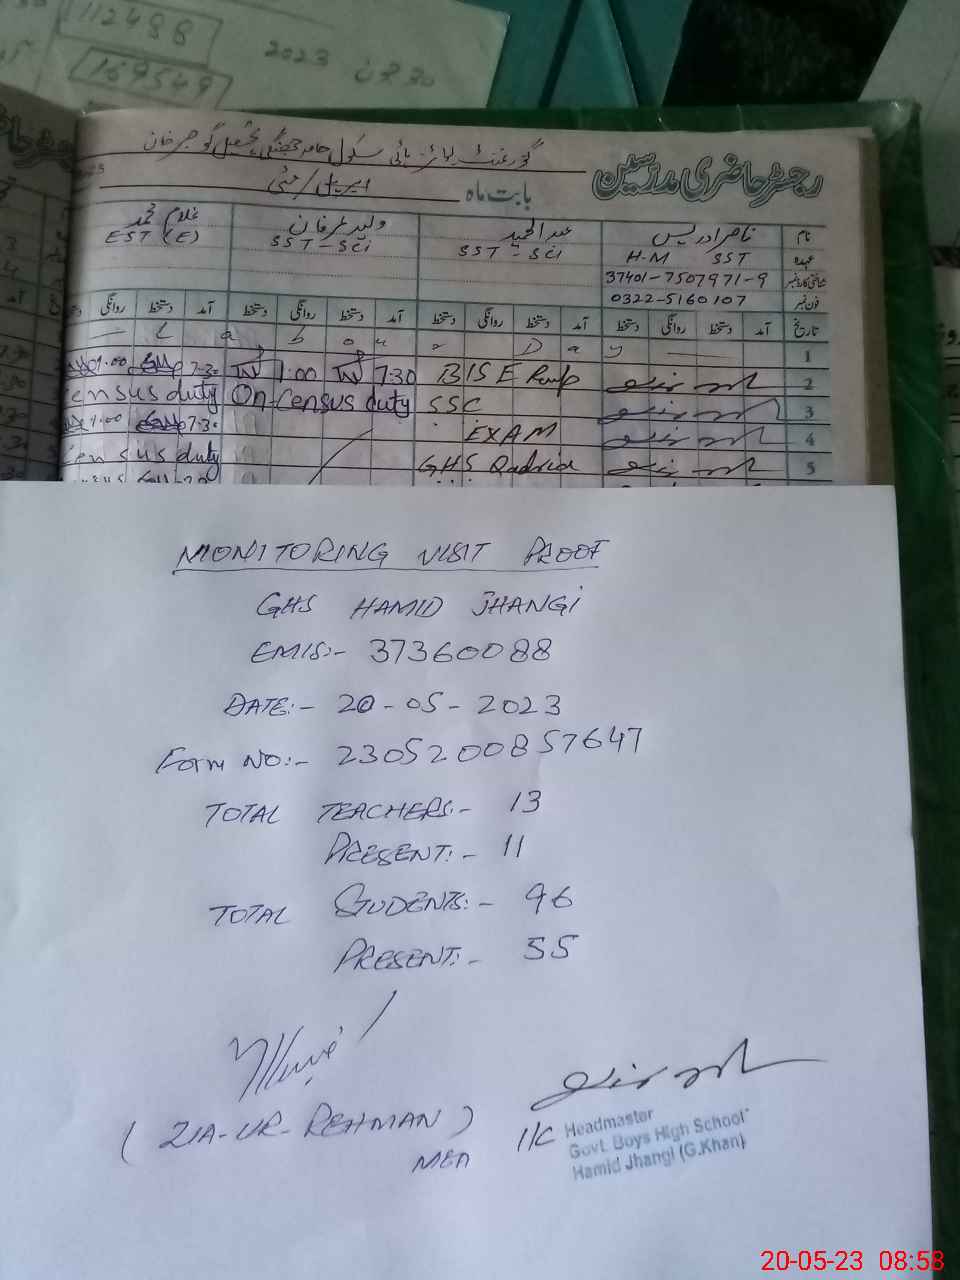 112488
169549
2023
30
رجسٹر حاضری مدرسین
گورنمنٹ بوائز ہائی سکول حامد جھنگی تحصیل گوجرخان
بابت ماہ اپریل/مئی
نام ناصر ادریس عبدالحمید ولید عرفان غلام محمد
عہدہ H-M SST SST-Sci SST-Sci EST (E)
شناختی کارڈ نمبر 37401-7507971-9
فون نمبر 0322-5160107
تاریخ آمد دستخط روانگی دستخط آمد دستخط روانگی دستخط آمد دستخط روانگی دستخط آمد دستخط روانگی
1 L a b o u r D a y
2 BISE Rwp 7:30 1:00 7:30 1:00
3 SSC On Census duty ensus duty
4 EXAM 7:30 1:00
5 GHS Qadria ensus duty
MONITORING VISIT PROOF
GHS HAMID JHANGI
EMIS:- 37360088
DATE:- 20-05-2023
Form NO:- 2305200857647
TOTAL TEACHERS:- 13
PRESENT:- 11
TOTAL STUDENTS:- 96
PRESENT:- 55
(ZIA-UR-REHMAN)
MEA
I/C Headmaster
Govt. Boys High School
Hamid Jhangi (G.Khan)
20-05-23 08:58